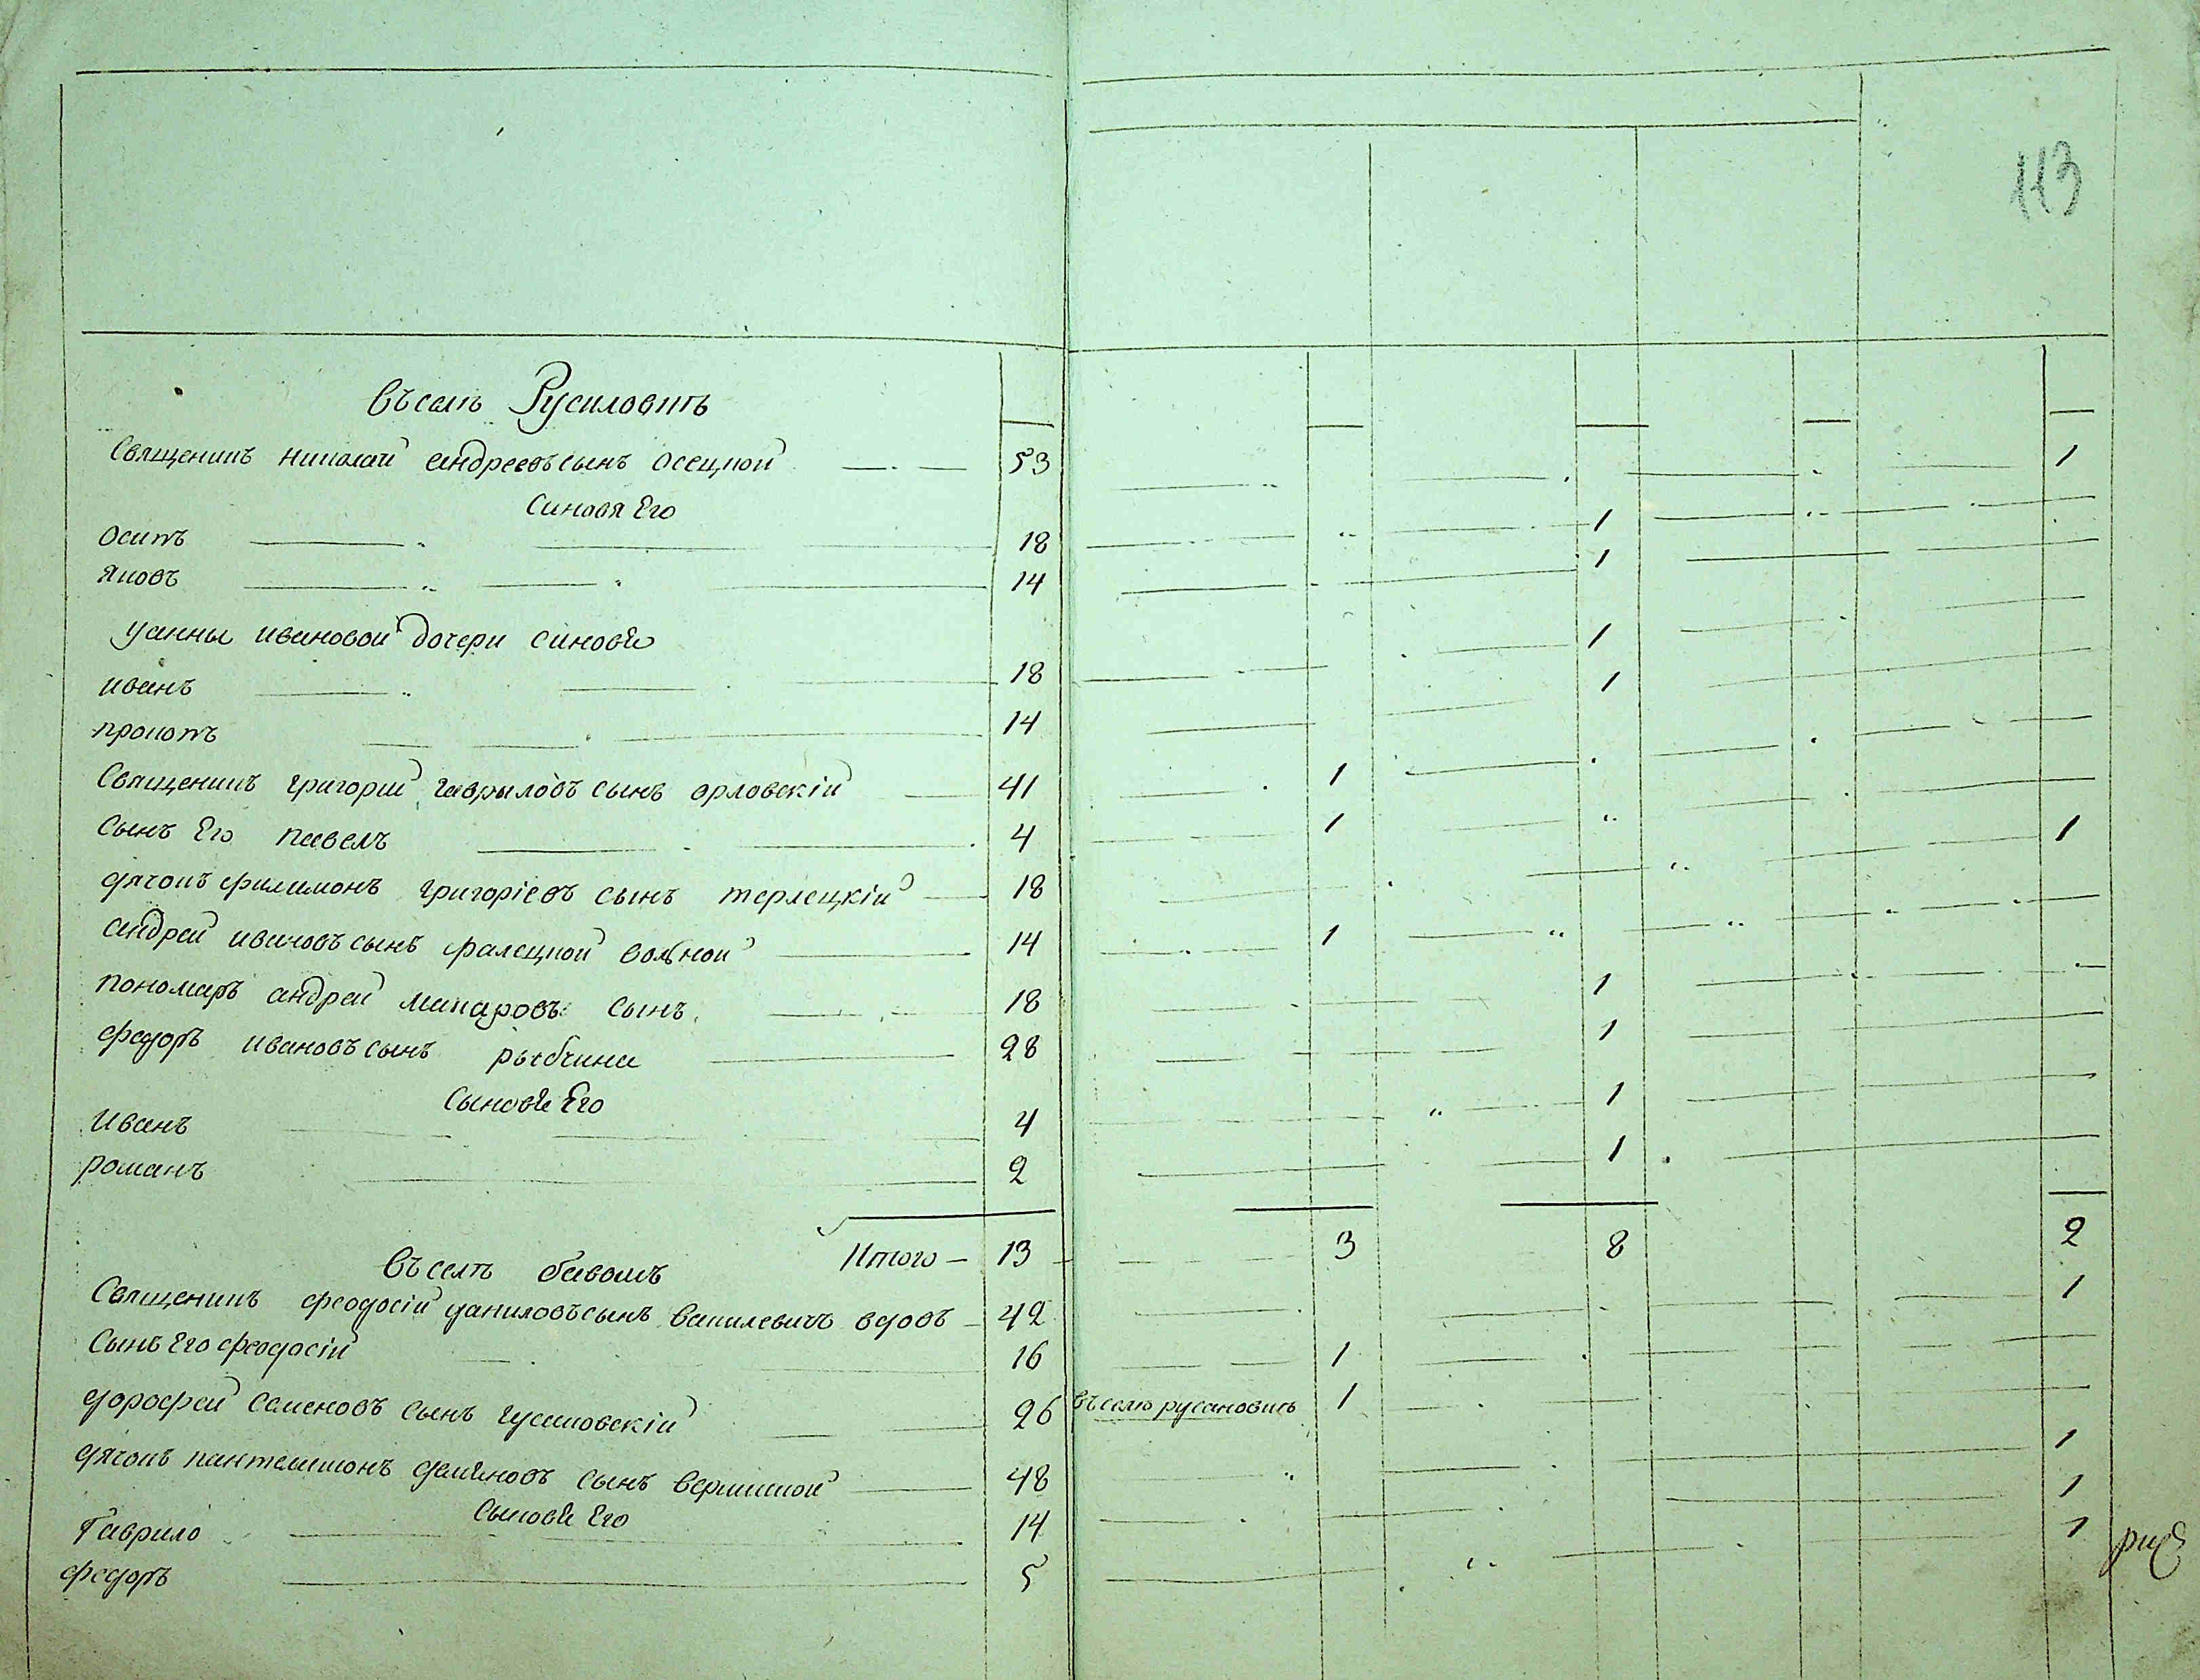 113
Въ селѣ Русиловитѣ
Священикъ николаи андреевъ сынъ осецкои 53 1
Синовя Его
осипъ 18 1
яковъ 14 1
уанны ивановои дочери синовѣ
иванъ 18 1
прокопъ 14 1
Священикъ григории гаврыловъ сынъ орловскіи 41 1
Сынъ Его павелъ 4 1
дячокъ филимонъ григоріевъ сынъ терлецкіи 18 1
андреи ивановъ сынъ фалецкои волнои 14 1
пономаръ андреи макаровъ сынъ 18 1
федоръ ивановъ сынъ 28 1
Сыновѣ Его
Иванъ 4 1
романъ 2 1
Итого 13 3 8 2
Въ селѣ
Священикъ феодосіи даниловъ сынъ василевичъ вдовъ 42 1
Сынъ Его феодосіи 16 1
дорофеи семеновъ сынъ 26 въ селѣ 1
дячокъ пантелимонъ сынъ 48 1
Сыновѣ Его
Гаврило 14 1
федоръ 5 1